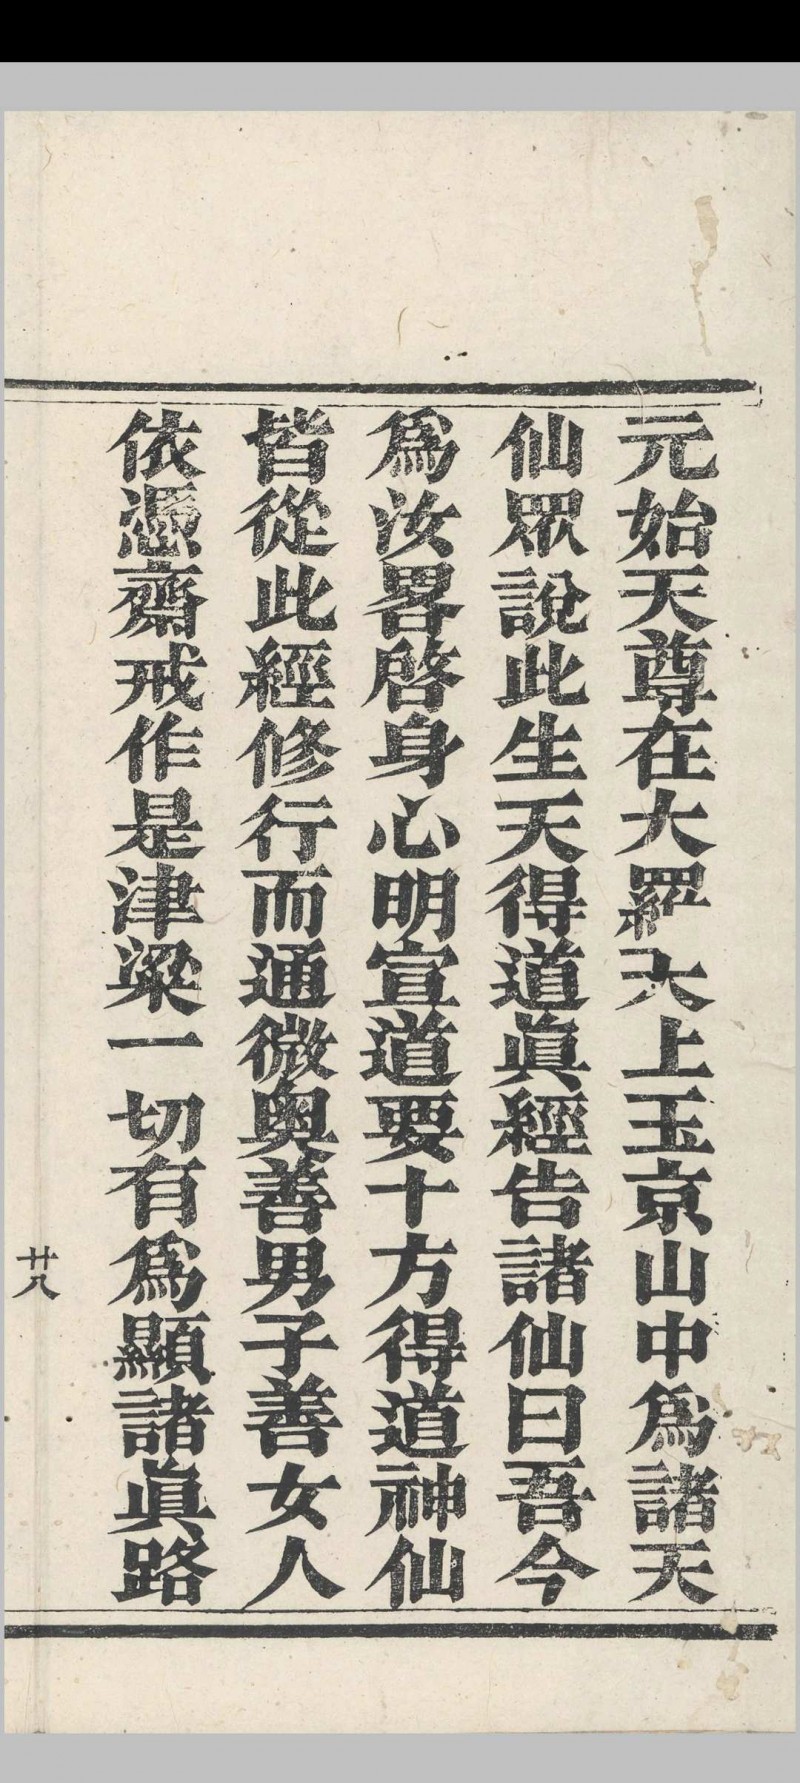 元始天尊在大羅天上玉京山中爲諸天
仙眾說此生天得道眞經告諸仙曰吾今
爲汝畧啓身心明宣道要十方得道神仙
皆從此經修行而通微奥善男子善女人
依憑齋戒作是津梁一切有爲顯諸眞路
廿八